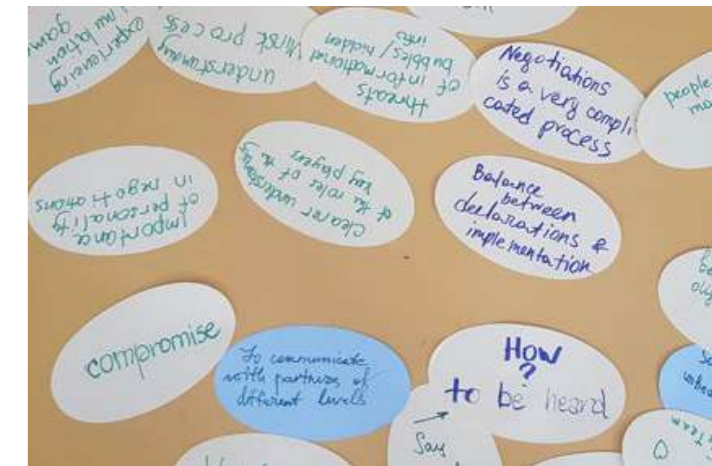 experiencing
game
understanding Minsk process
threats
of informational
bubbles/hidden
info
Negotiations
is a very compli
cated process
people
Importance
of personality
in negotiations
clearer understanding
of the roles of the
key players
Balance
between
declarations &
implementation
compromise
to communicate
with partners of
different levels
HOW
?
to be heard
Say
Team